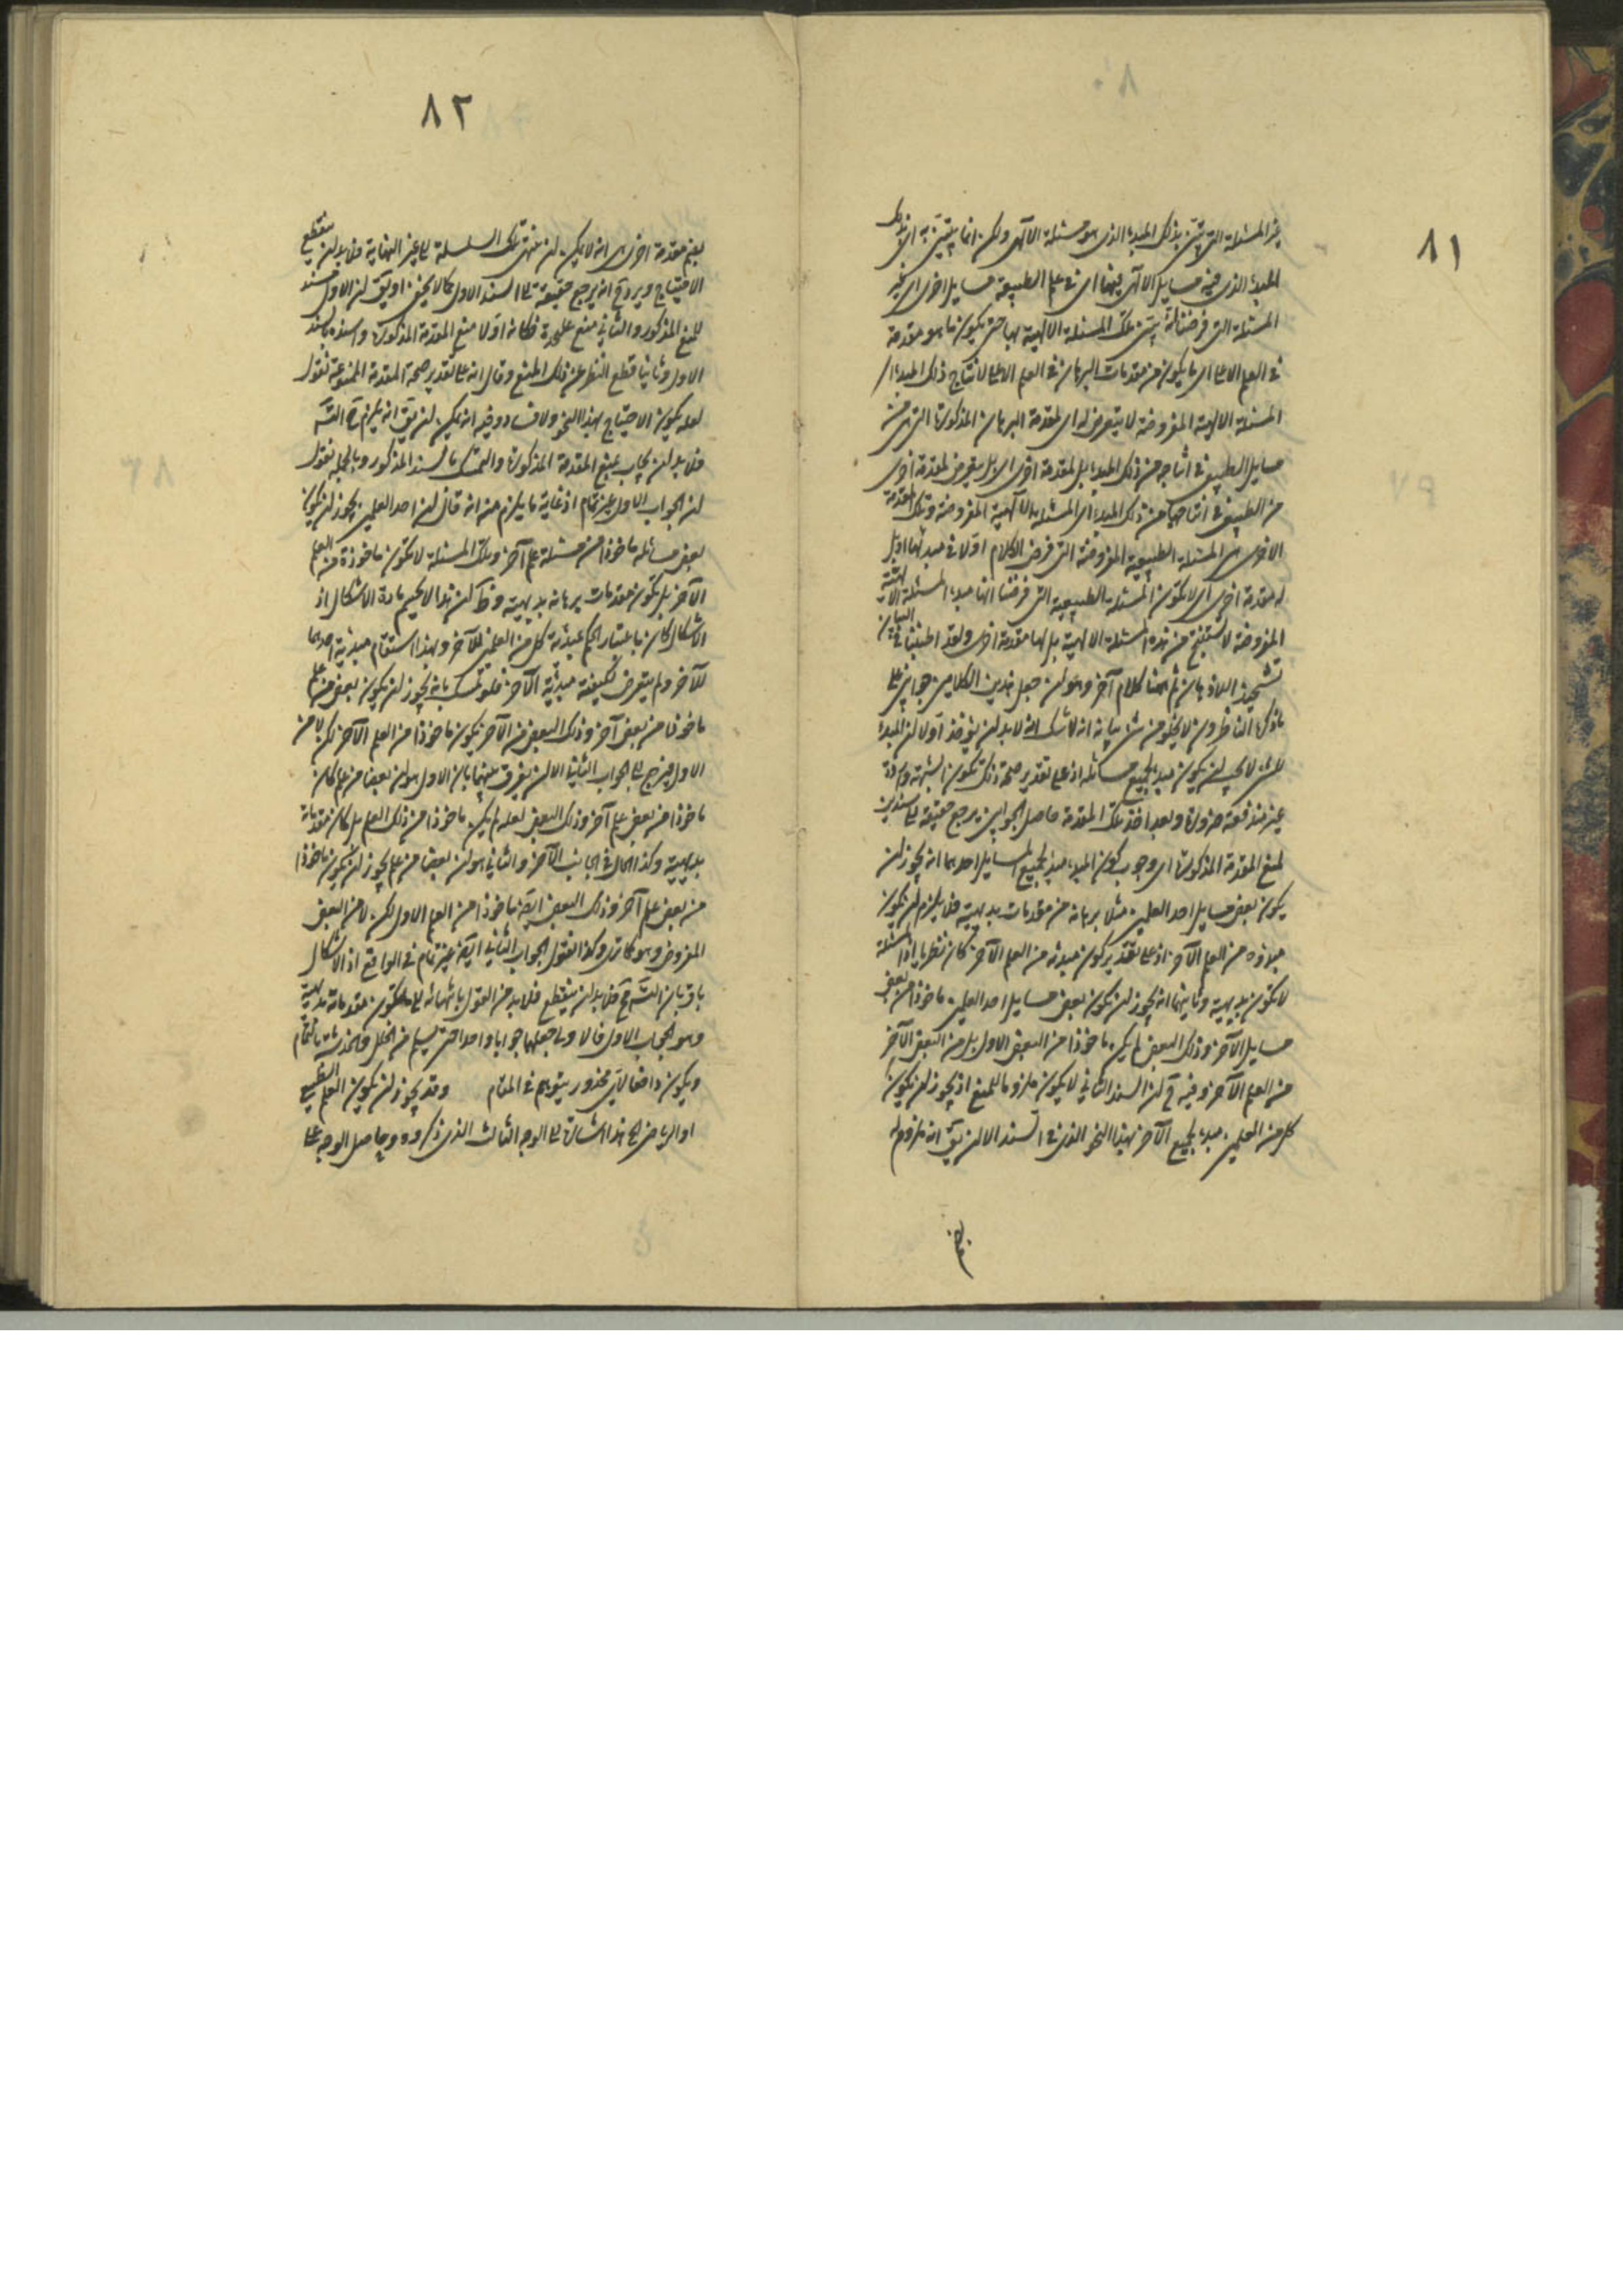 ٨١
غير المسئلة التي تبين بذلك المبدء الذي هو مسئلة الالهي ولكن انما يتبين به
المبدء الذي فيه مسايل الالهي فيها اي في علم الطبيعة مسايل اخرى اي غير
المسئلة التي فرضنا انه يتبين تلك المسئلة الالهية بها حتى يكون ما هو مقدمة
في العلم الاعلى اي ما يكون من مقدمات البرهان في العلم الاعلى لانتاج ذلك المبدء اي
المسئلة الالهية المفروضة لا يتعرض له اي لمقدمة البرهان المذكورة التي هي من
مسايل الطبيعي في انتاجه من ذلك المبدء بل لمقدمة اخرى اي بل يتعرض لمقدمة اخرى
من الطبيعي في انتاجها من ذلك المبدء اي المسئلة الالهية المفروضة وتلك المقدمة
الاخرى هي المسئلة الطبيعية المفروضة التي فرض الكلام اولا في مبدئها او بل
له مقدمة اخرى اي لا تكون المسئلة الطبيعية التي فرضنا انها مبدء المسئلة الالهية
المفروضة لا تستنتج من هذه المسئلة الالهية بل لها مقدمة اخرى ولقد اطنبنا في البيان
تشحيذا للاذهان ثم ههنا كلام آخر وهو ان جعل هذين الكلامين جوابين على
ما ذكره الناظرون لا يخلو من شئ بيانه انه لا شك انه لا بد ان يؤخذ اولا ان المبدء
للشئ لا يجب ان يكون مبدء لجميع مسائله اذ على تقدير صحة ذلك تكون الشبهة واردة
غير مندفعة ضرورة وبعد اخذ تلك المقدمة حاصل الجوابين يرجع حقيقة الى سندين
لمنع المقدمة المذكورة اي وجوب كون المبدء مبدء لجميع المسايل احدهما انه يجوز ان
يكون بعض مسايل احد العلمين مثلا برهانه من مقدمات بديهية فلا يلزم ان يكون
مبدؤه من العلم الآخر اذ على تقدير كون مبدئه من العلم الآخر كان نظريا اذ المسئلة
لا تكون بديهية وثانيهما انه يجوز ان يكون بعض مسايل احد العلمين ماخوذا من بعض
مسايل الآخر وذلك البعض لم يكن ماخوذا من البعض الاول بل من البعض الآخر
من العلم الآخر وفيه ح ان السند الثاني لا يكون ملزوما للمنع اذ يجوز ان يكون
كل من العلمين مبدء لجميع الآخر بهذا النحو الذي في السند الا ان يق انه ملزوم له
٨٢
بضم مقدمة اخرى هي انه لا يمكن ان تنتهي تلك السلسلة الى غير النهاية فلا بد ان ينقطع
الاحتياج ويرد ح انه يرجع حقيقة الى السند الاول كما لا يخفى او يق ان الاول سند
للمنع المذكور والثاني منع على حدة فكانه اولا منع المقدمة المذكورة واسنده بالسند
الاول وثانيا قطع النظر عن ذلك المنع وقال انه على تقدير صحة المقدمة الممنوعة نقول
لعله يكون الاحتياج بهذا النحو ولا فساد وفيه انه يمكن ان يق انه يلزم ح التس
فلا بد ان يجاب بمنع المقدمة المذكورة والتمسك بالسند المذكور وبالجملة نقول
ان الجواب الاول غير تمام اذ غاية ما يلزم منه انه قال ان احد العلمين يجوز ان يكون
بعض مسائله ماخوذا من مسئلة علم آخر وتلك المسئلة لا تكون ماخوذة من العلم
الآخر بل تكون مقدمات برهانه بديهية وظ ان هذا لا يحسم مادة الاشكال اذ
الاشكال كان باعتبار الحكم بمبدئية كل من العلمين للآخر وبهذا استقام مبدئية احدهما
للآخر ولم يتعرض لكيفية مبدئية الآخر فلو تمسك بانه يجوز ان يكون بعض من علم
ماخوذا من بعض آخر وذلك البعض من الآخر يكون ماخوذا من العلم الآخر لكن لا من
الاول فيرجع الى الجواب الثاني الا ان يفرق بينهما بان الاول هو ان بعضا من علم كان
ماخوذا من بعض علم آخر وذلك البعض لعله لم يكن ماخوذا من ذلك العلم بل كان مقدماته
بديهية وكذا الحال في الجانب الآخر والثاني هو ان بعضا من علم يجوز ان يكون ماخوذا
من بعض علم آخر وذلك البعض ايضا ماخوذا من العلم الاول لكن لا من البعض
المفروض وهو كما ترى وكذا نقول الجواب الثاني ايضا غير تمام في الواقع اذ الاشكال
باق بان التس ح فلا بد ان ينقطع فلا بد من القول بانتهائه الى ما تكون مقدماته بديهية
وهو الجواب الاول فالاولى جعلهما جوابا واحدا حتى يسلم من الخلل والخدشة بالتمام
ويكون دافعا لاي محذور يتوهم في المقام وقد يجوز ان يكون العلم الطبيعي
او الرياضي الخ هذا اشارة الى الوجه الثالث الذي ذكروه وحاصل الوجه على